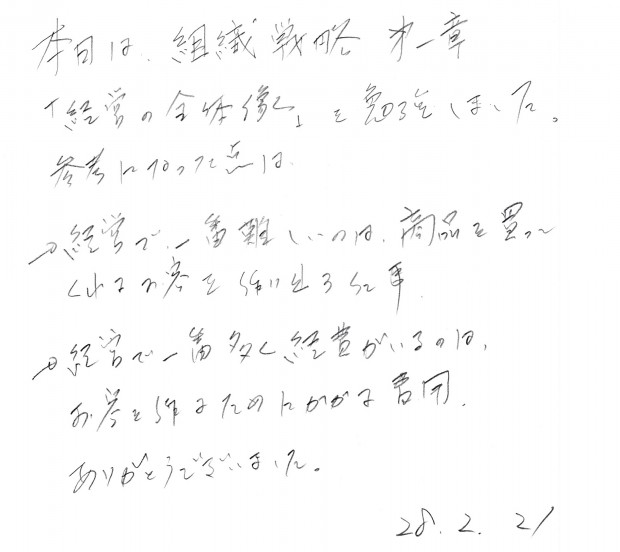 本日は、組織戦略 オ一章
「経営の全体像」を勉強しました。
参考になった点は、
→経営で、一番難しいのは、商品を買って
くれるお客を作り出す仕事.
→経営で一番多く経費がいるのは、
お客を作るためにかかる費用.
ありがとうございました。
28.2.21